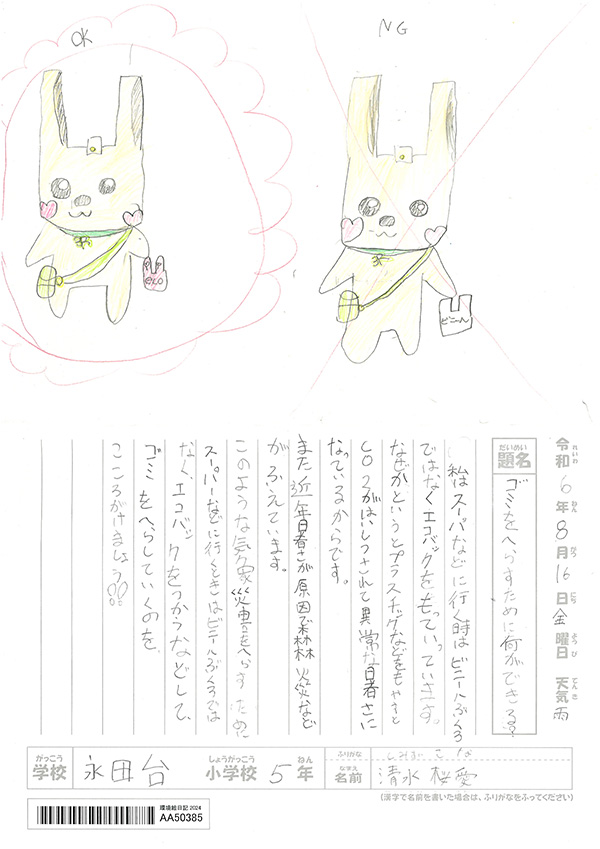 OK
NG
eco
ビニール
令和6年8月16日金曜日 天気 雨
れいわ ねん がつ にち ようび てんき
だいめい
題名
ゴミをへらすために何ができる?
私はスーパなどに行く時はビニールぶくろ
ではなくエコバックをもっていっています。
なぜかというとプラスチックなどをもやすと
CO2がはいしつされて異常な暑さに
なっているからです。
また近年暑さが原因で森林火災など
がふえています。
このような気象災害をへらすために
スーパーなどに行くときはビニールぶくろでは
なく、エコバックをつかうなどして、
ゴミをへらしていくのを
こころがけましょう!!
がっこう
学校
永田台
しょうがっこう
小学校
5年
ねん
ふりがな
なまえ
名前
清水桜愛
(漢字で名前を書いた場合は、ふりがなをふってください)
環境絵日記 2024
AA50385